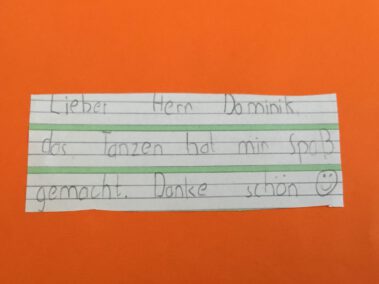 Lieber Herr Dominik,
das Tanzen hat mir Spaß
gemacht. Danke schön